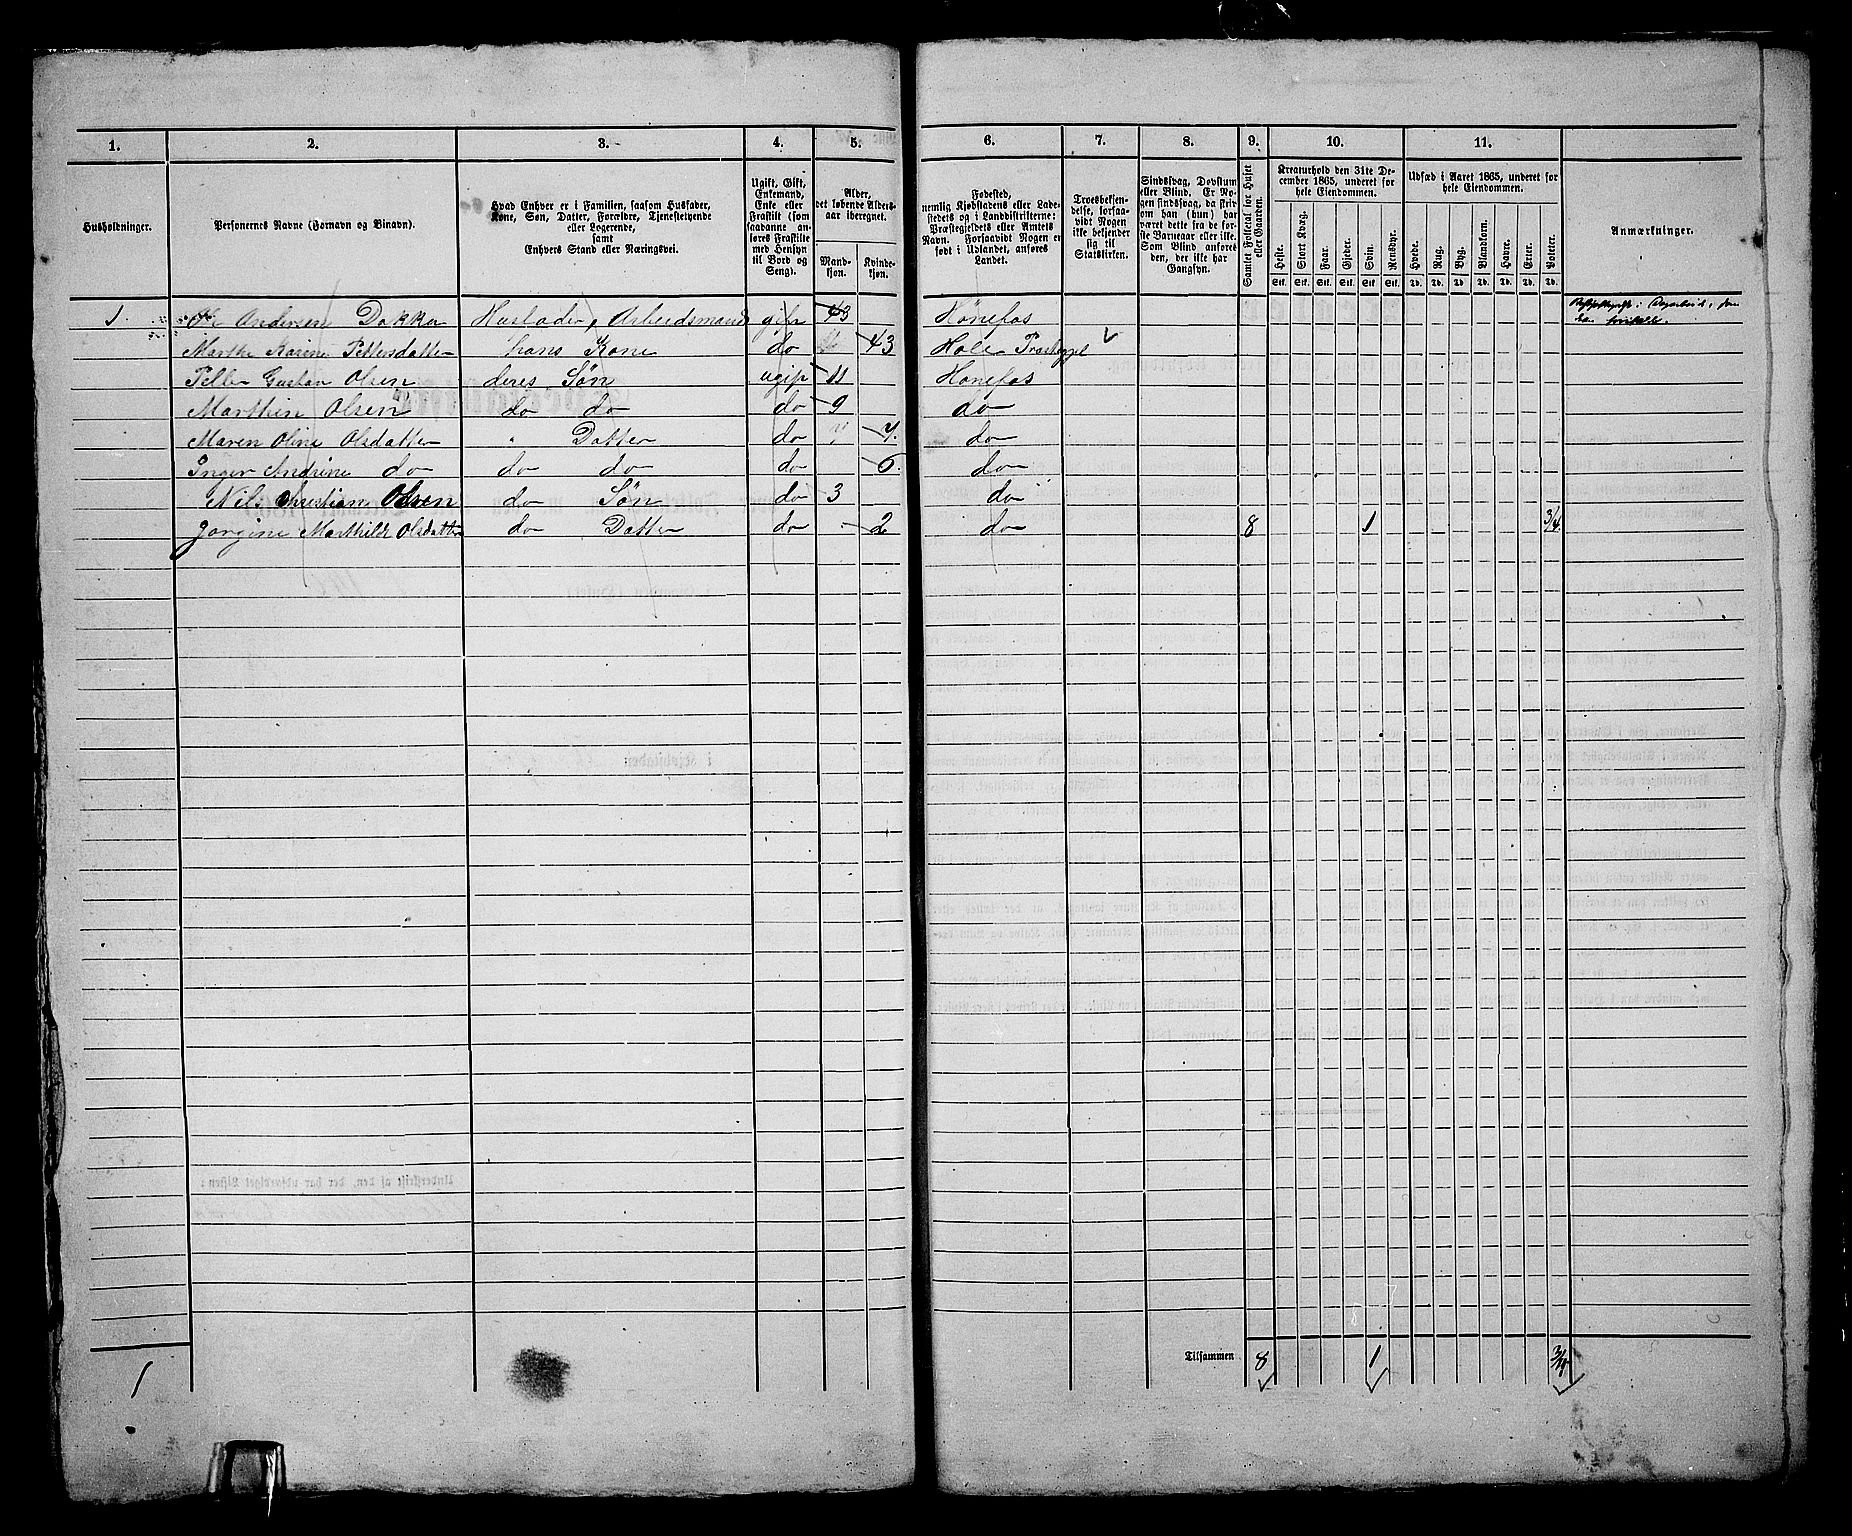 1. 2. 3. 4. 5. 6. 7. 8. 9. 10. 11.
Husholdninger.
Personernes Navne (Fornavn og Binavn).
Hvad Enhver er i Familien, saasom Husfader,
Kone, Søn, Datter, Forældre, Tjenestetyende
eller Logerende,
samt
Enhvers Stand eller Næringsvei.
Ugift, Gift,
Enkemand,
Enke eller
Fraskilt (som
saadanne an-
føres Fraskilte
med Hensyn
til Bord og
Seng).
Alder,
det løbende Alders-
aar iberegnet.
Mand-
kjøn.
Kvinde-
kjøn.
Fødested,
nemlig Kjøbstadens eller Lade-
stedets og i Landdistrikterne:
Præstegjeldets eller Amtets
Navn. Forsaavidt Nogen er
født i Udlandet, anføres
Landet.
Troesbekjen-
delse, forsaa-
vidt Nogen
ikke bekjender
sig til
Statskirken.
Sindssvag, Døvstum
eller Blind. Er No-
gen sindssvag, da skriv
om han (hun) har
været dette fra de før-
ste Barneaar eller ikke.
Som Blind anføres
den, der ikke har
Gangsyn.
Samlet Folketal for Huset
eller Gaarden.
Kreaturhold den 31te De-
cember 1865, underet for
hele Eiendommen.
Heste. Stort Kvæg. Faar. Gjeder. Svin. Rensdyr.
Stk. Stk. Stk. Stk. Stk. Stk.
Udsæd i Aaret 1865, underet for
hele Eiendommen.
Hvede. Rug. Byg. Blandkorn. Havre. Erter. Poteter.
Td. Td. Td. Td. Td. Td. Td.
Anmærkninger.
1. Ole Andersen Dokka Husfader, Arbeidsmand gift 43 Hønefos
Marthe Karine Pettersdatter hans Kone do 43 Hole Præstegjel
Petter Gustav Olsen deres Søn ugift 11 Hønefos
Marthin Olsen do do do 9 do
Maren Oline Olsdatter " Datter do 7. do
Inger Andrine do do do do 5. do
Nils Christian Olsen do Søn do 3 do
Jørgine Marthilde Olsdatter do Datter do 2 do 8 1 3/4.
Tilsammen 8 1 3/4
1